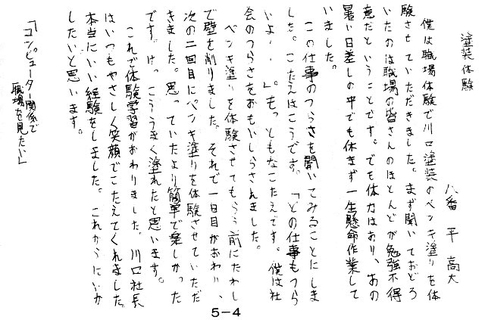 塗装体験
八番 平 高大
僕は職場体験で川口塗装のペンキ塗りを体
験させていただきました。まず聞いておどろ
いたのは職場の皆さんのほとんどが勉強不得
意だということです。でも体力はあり、あの
暑い日差しの中でも休まず一生懸命作業して
いました。
この仕事のつらさを聞いてみることにしま
した。こたえはこうです。「どの仕事もつら
いよ・・。」も、ともなこたえです。僕は社
会のつらさをおもいしらされました。
ペンキ塗りを体験させてもらう前にたわし
で壁を削りました。それで一日目がおわり、
次の二回目にペンキ塗りを体験させていただ
きました。思っていたより簡単で楽しかった
です。けっこううまく塗れたと思います。
これで体験学習がおわりました。川口社長
はいつもやさしく笑顔でこたえてくれました。
本当にいい経験をしました。これからにいか
したいと思います。
「コンピューター関係で
職場を見たい」
5-4